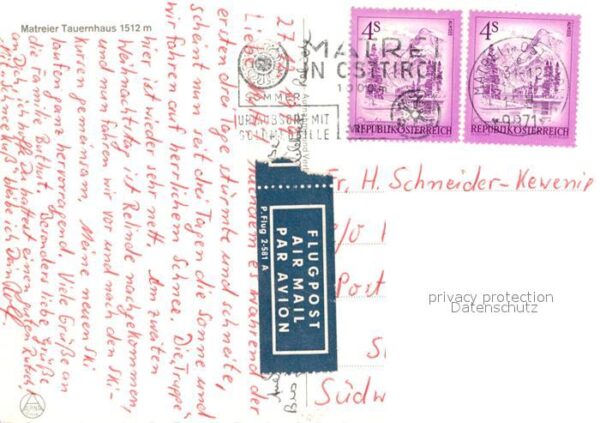 Matreier Tauernhaus 1512 m
Liebe
nachdem es während der
ersten drei Tage stürmte und schneite,
scheint nun seit drei Tagen die Sonne und
wir fahren auf herrlichem Schnee. Die Truppe
hier ist wieder sehr nett. Am zweiten
Weihnachtstag ist Relinde nachgekommen,
und nun fahren wir vor und nach den Ski-
kursen gemeinsam. Meine neuen Ski
laufen ganz hervorragend. Viele Grüße an
die Familie Ruthart. Besonders liebe Grüße
an Dich. Ich hoffe Du hattest einen guten Rutsch!
MATREI
IN OSTTIROL
1000 m
SOMMER
URLAUBSORT MIT
4S
REPUBLIK ÖSTERREICH
4S
REPUBLIK ÖSTERREICH
9971
P. Flug 2-581 A
FLUGPOST
AIR MAIL
PAR AVION
Fr. H. Schneider-Kewenip
c/o
Post
Südw
privacy protection
Datenschutz